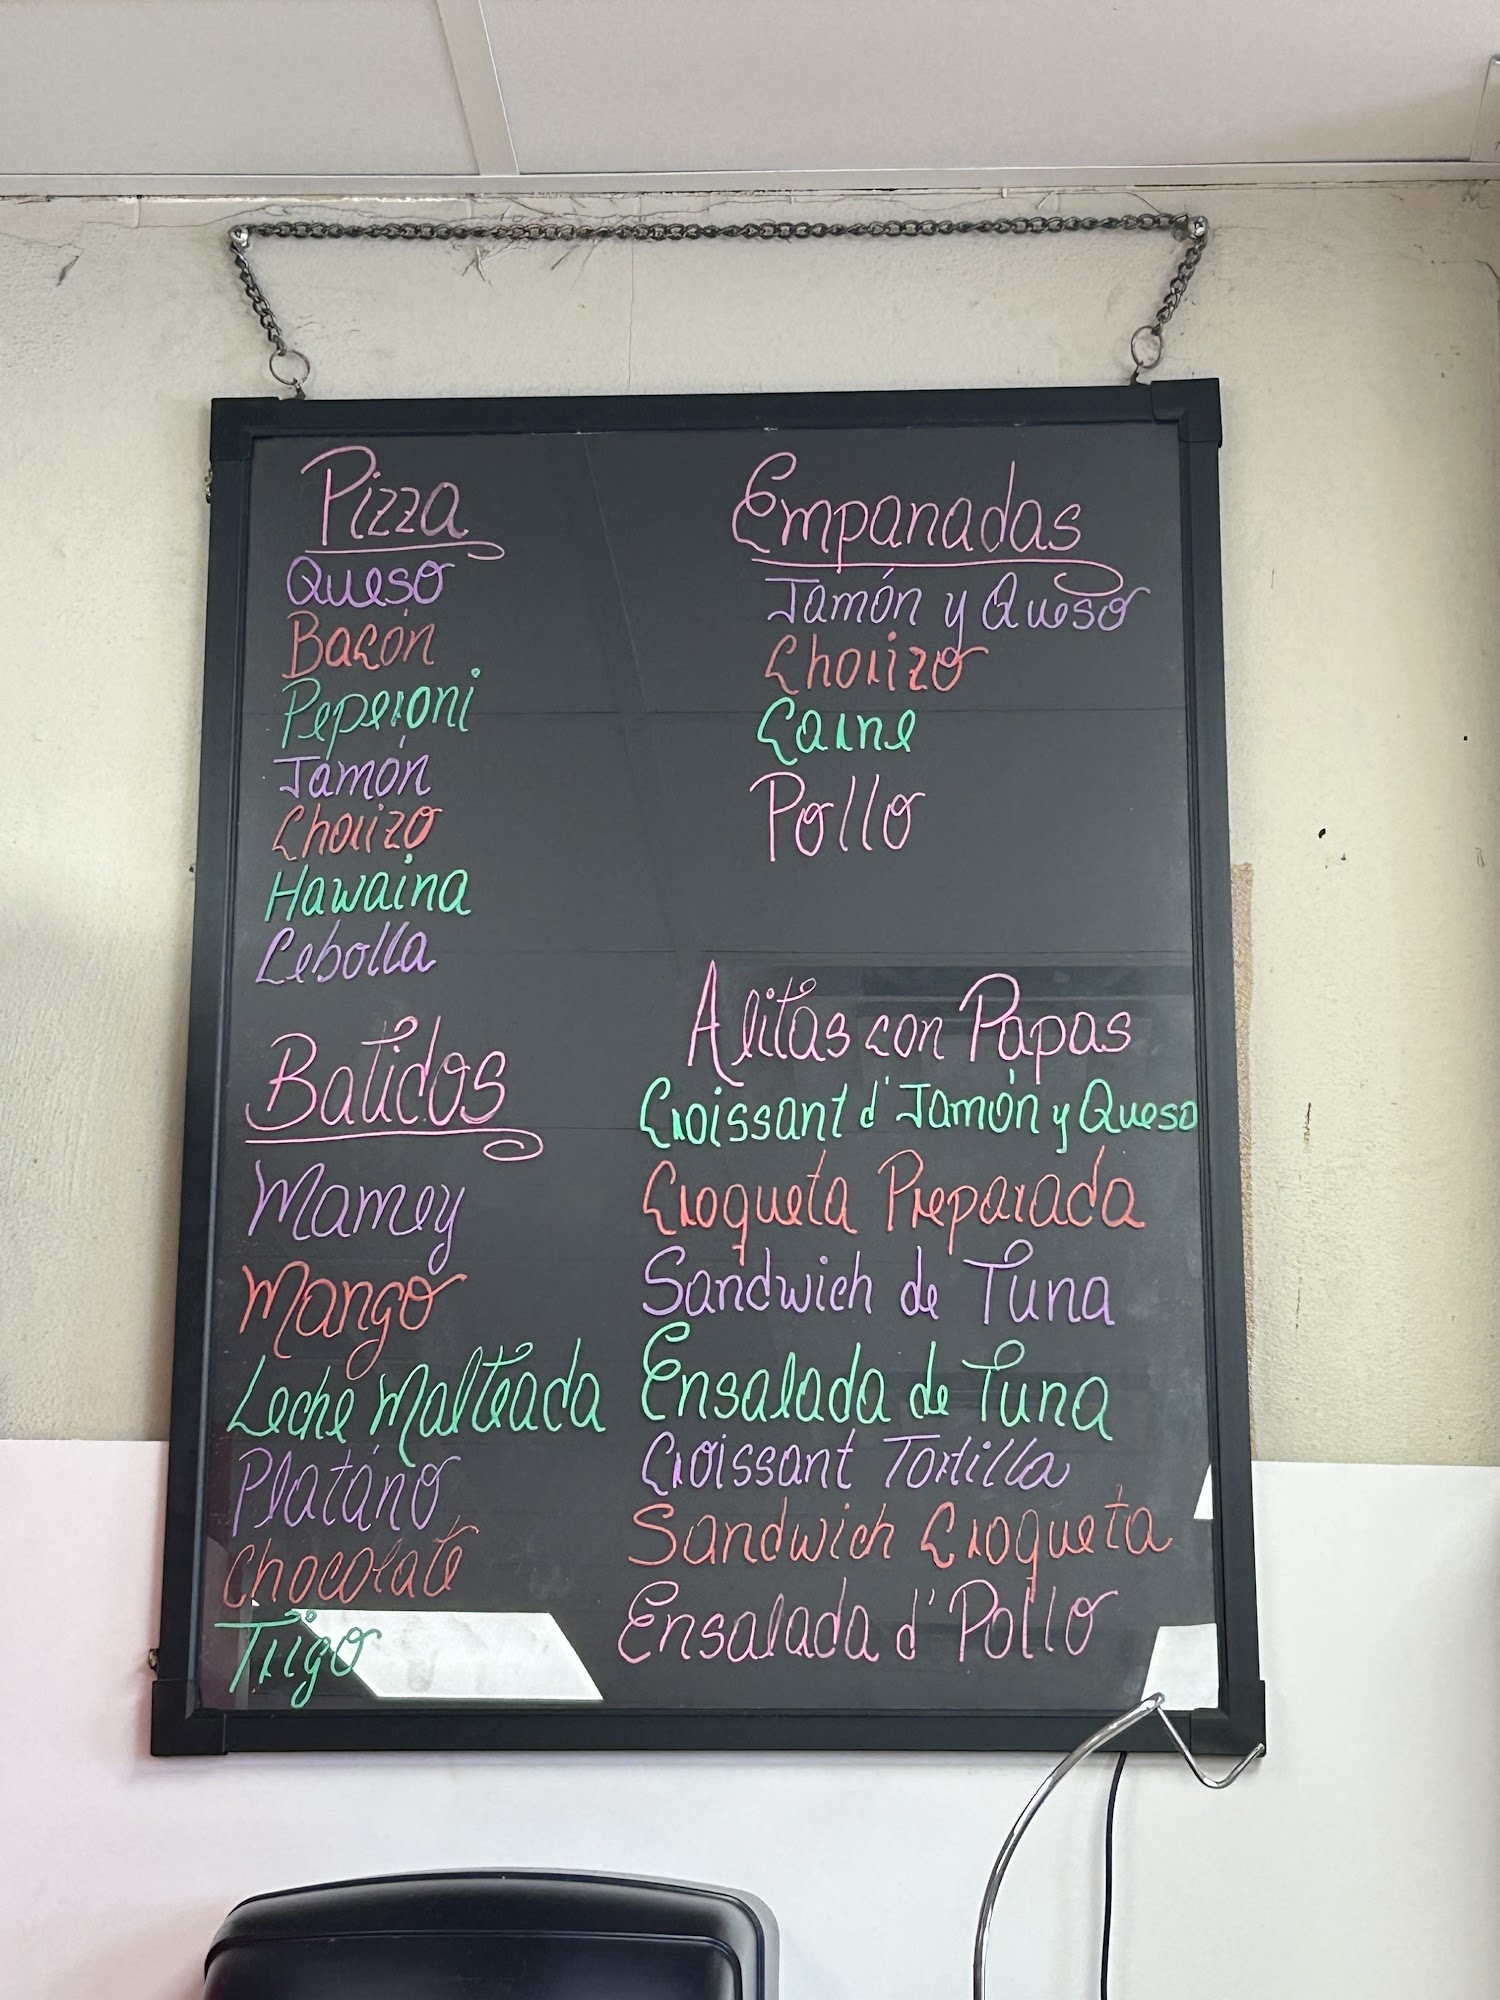 Pizza
Queso
Bacón
Peperoni
Jamón
Chorizo
Hawaina
Cebolla
Batidos
Mamey
Mango
Leche Malteada
Platáno
Chocolate
Trigo
Empanadas
Jamón y Queso
Chorizo
Carne
Pollo
Alitas con Papas
Croissant d' Jamón y Queso
Croqueta Preparada
Sandwich de Tuna
Ensalada de Tuna
Croissant Tortilla
Sandwich Croqueta
Ensalada d' Pollo